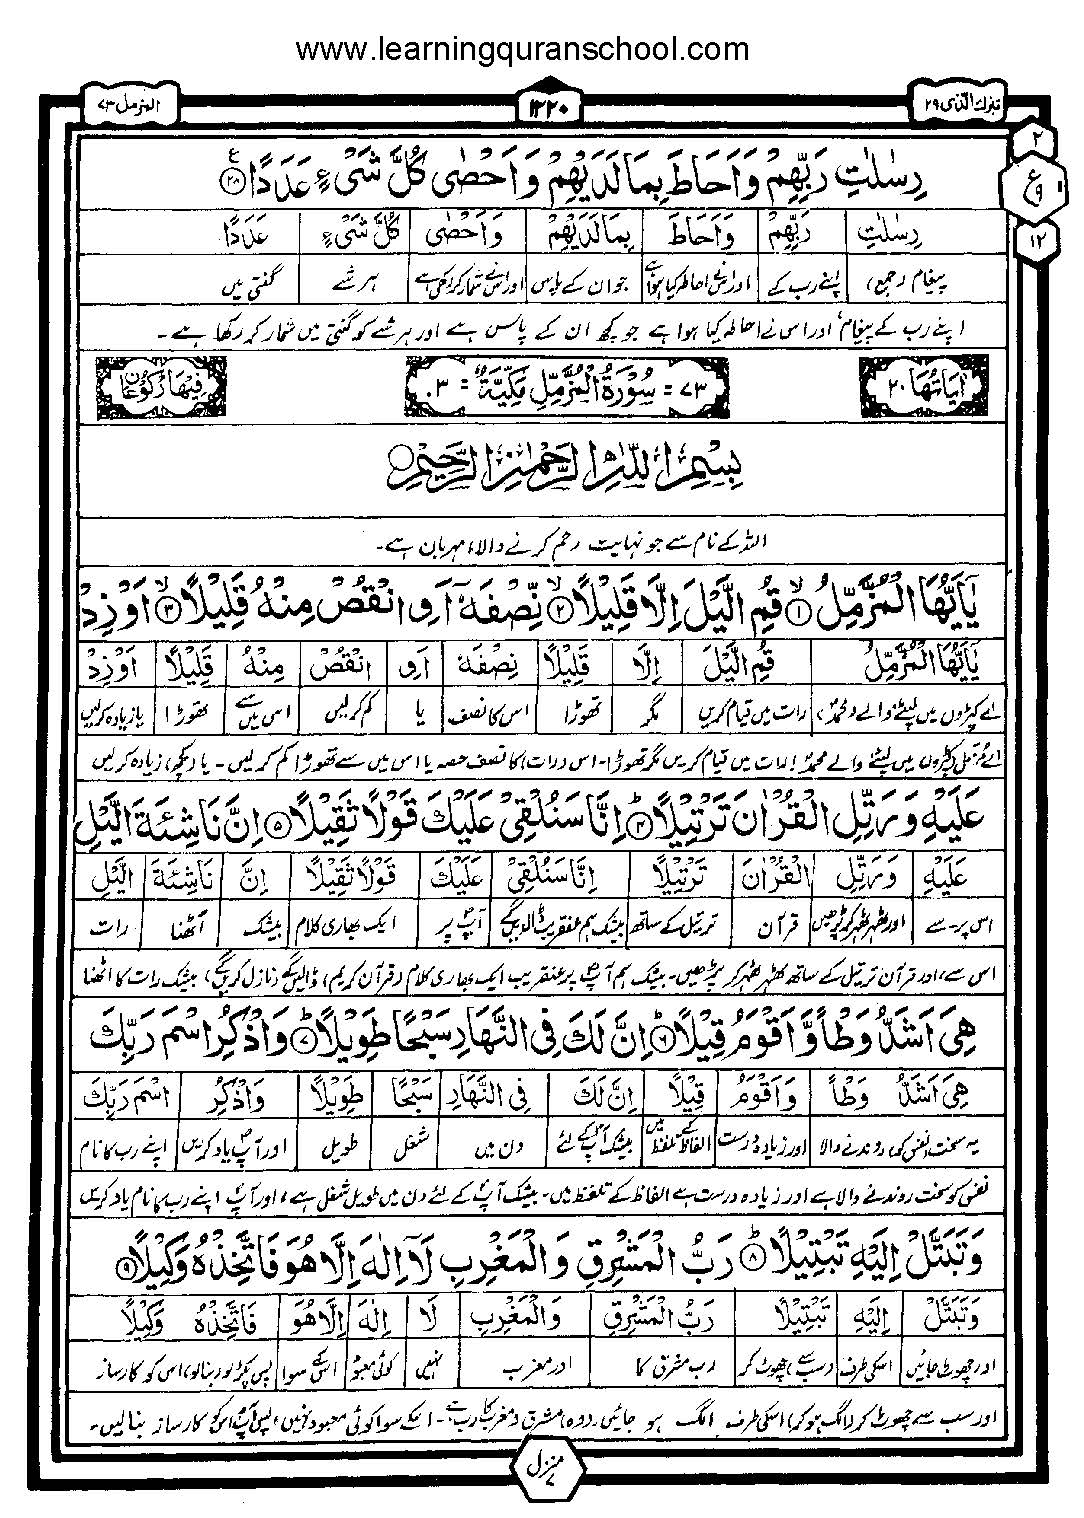 www.learningquranschool.com
تبٰرك الذی ۲۹
۱۳۲۰
المزمل ۷۳
۲
ع
۹
۱۲
رِسٰلٰتِ رَبِّهِمْ وَاَحَاطَ بِمَا لَدَيْهِمْ وَاَحْصٰى كُلَّ شَىْءٍ عَدَدًا ۲۸
رِسٰلٰتِ رَبِّهِمْ وَاَحَاطَ بِمَا لَدَيْهِمْ وَاَحْصٰى كُلَّ شَىْءٍ عَدَدًا
پیغام (جمع) اپنے رب کے اور اس نے احاطہ کیا ہوا ہے جو ان کے پاس اور اس نے شمار کر رکھی ہے ہر شے گنتی میں
اپنے رب کے پیغام، اور اس نے احاطہ کیا ہوا ہے جو کچھ ان کے پاس ہے اور ہر شے کو گنتی میں شمار کر رکھا ہے۔
اٰيَاتُهَا ۲۰
۷۳ = سُوْرَةُ الْمُزَّمِّلِ مَكِّيَّةٌ = ۳
فِيْهَا رُكُوْعَانِ
بِسْمِ اللهِ الرَّحْمٰنِ الرَّحِيْمِ
اللہ کے نام سے جو نہایت رحم کرنے والا، مہربان ہے۔
يٰۤاَيُّهَا الْمُزَّمِّلُ ۱ قُمِ الَّيْلَ اِلَّا قَلِيْلًا ۲ نِّصْفَهٗۤ اَوِ انْقُصْ مِنْهُ قَلِيْلًا ۳ اَوْ زِدْ
يٰۤاَيُّهَا الْمُزَّمِّلُ قُمِ الَّيْلَ اِلَّا قَلِيْلًا نِصْفَهٗ اَوِ انْقُصْ مِنْهُ قَلِيْلًا اَوْ زِدْ
اے کپڑوں میں لپٹنے والے (محمدؐ) رات میں قیام کریں مگر تھوڑا اس کا نصف یا کم کر لیں اس میں سے تھوڑا یا زیادہ کر لیں
اے مزمل کپڑوں میں لپٹنے والے محمدؐ! رات میں قیام کریں مگر تھوڑا۔ اس (رات) کا نصف حصہ یا اس میں سے تھوڑا کم کر لیں۔ یا (کچھ) زیادہ کر لیں
عَلَيْهِ وَرَتِّلِ الْقُرْاٰنَ تَرْتِيْلًا ۴ اِنَّا سَنُلْقِىْ عَلَيْكَ قَوْلًا ثَقِيْلًا ۵ اِنَّ نَاشِئَةَ الَّيْلِ
عَلَيْهِ وَرَتِّلِ الْقُرْاٰنَ تَرْتِيْلًا اِنَّا سَنُلْقِىْ عَلَيْكَ قَوْلًا ثَقِيْلًا اِنَّ نَاشِئَةَ الَّيْلِ
اس پر۔ سے اور ٹھہر ٹھہر کر پڑھیں قرآن ترتیل کے ساتھ بیشک ہم عنقریب ڈالیں گے آپؐ پر ایک بھاری کلام بیشک اٹھنا رات
اس سے، اور قرآن ترتیل کے ساتھ ٹھہر ٹھہر کر پڑھیں۔ بیشک ہم آپؐ پر عنقریب ایک بھاری کلام (قرآن کریم) ڈالیں گے (نازل کریں گے)، بیشک رات کا اٹھنا
هِىَ اَشَدُّ وَطْاً وَّاَقْوَمُ قِيْلًا ۶ اِنَّ لَكَ فِى النَّهَارِ سَبْحًا طَوِيْلًا ۷ وَاذْكُرِ اسْمَ رَبِّكَ
هِىَ اَشَدُّ وَطْاً وَاَقْوَمُ قِيْلًا اِنَّ لَكَ فِى النَّهَارِ سَبْحًا طَوِيْلًا وَاذْكُرِ اسْمَ رَبِّكَ
یہ سخت (نفس کو) روندنے والا اور زیادہ درست الفاظ کے تلفظ میں بیشک آپؐ کے لئے دن میں شغل طویل اور آپؐ یاد کریں اپنے رب کا نام
نفس کو سخت روندنے والا ہے اور زیادہ درست ہے الفاظ کے تلفظ میں۔ بیشک آپؐ کے لئے دن میں طویل شغل ہے، اور آپؐ اپنے رب کا نام یاد کریں
وَتَبَتَّلْ اِلَيْهِ تَبْتِيْلًا ۸ رَبُّ الْمَشْرِقِ وَالْمَغْرِبِ لَاۤ اِلٰهَ اِلَّا هُوَ فَاتَّخِذْهُ وَكِيْلًا ۹
وَتَبَتَّلْ اِلَيْهِ تَبْتِيْلًا رَبُّ الْمَشْرِقِ وَالْمَغْرِبِ لَا اِلٰهَ اِلَّا هُوَ فَاتَّخِذْهُ وَكِيْلًا
اور چھوٹ جائیں اسکی طرف (سب سے) چھوٹ کر رب مشرق کا اور مغرب نہیں کوئی معبود اسکے سوا پس پکڑ لو (بنالو) اس کو کارساز
اور سب سے چھوٹ کر (الگ ہو کر) اسکی طرف الگ ہو جائیں۔ (وہ) مشرق و مغرب کا رب ہے۔ اسکے سوا کوئی معبود نہیں، پس آپؐ اس کو کارساز بنالیں۔
منزل ۷